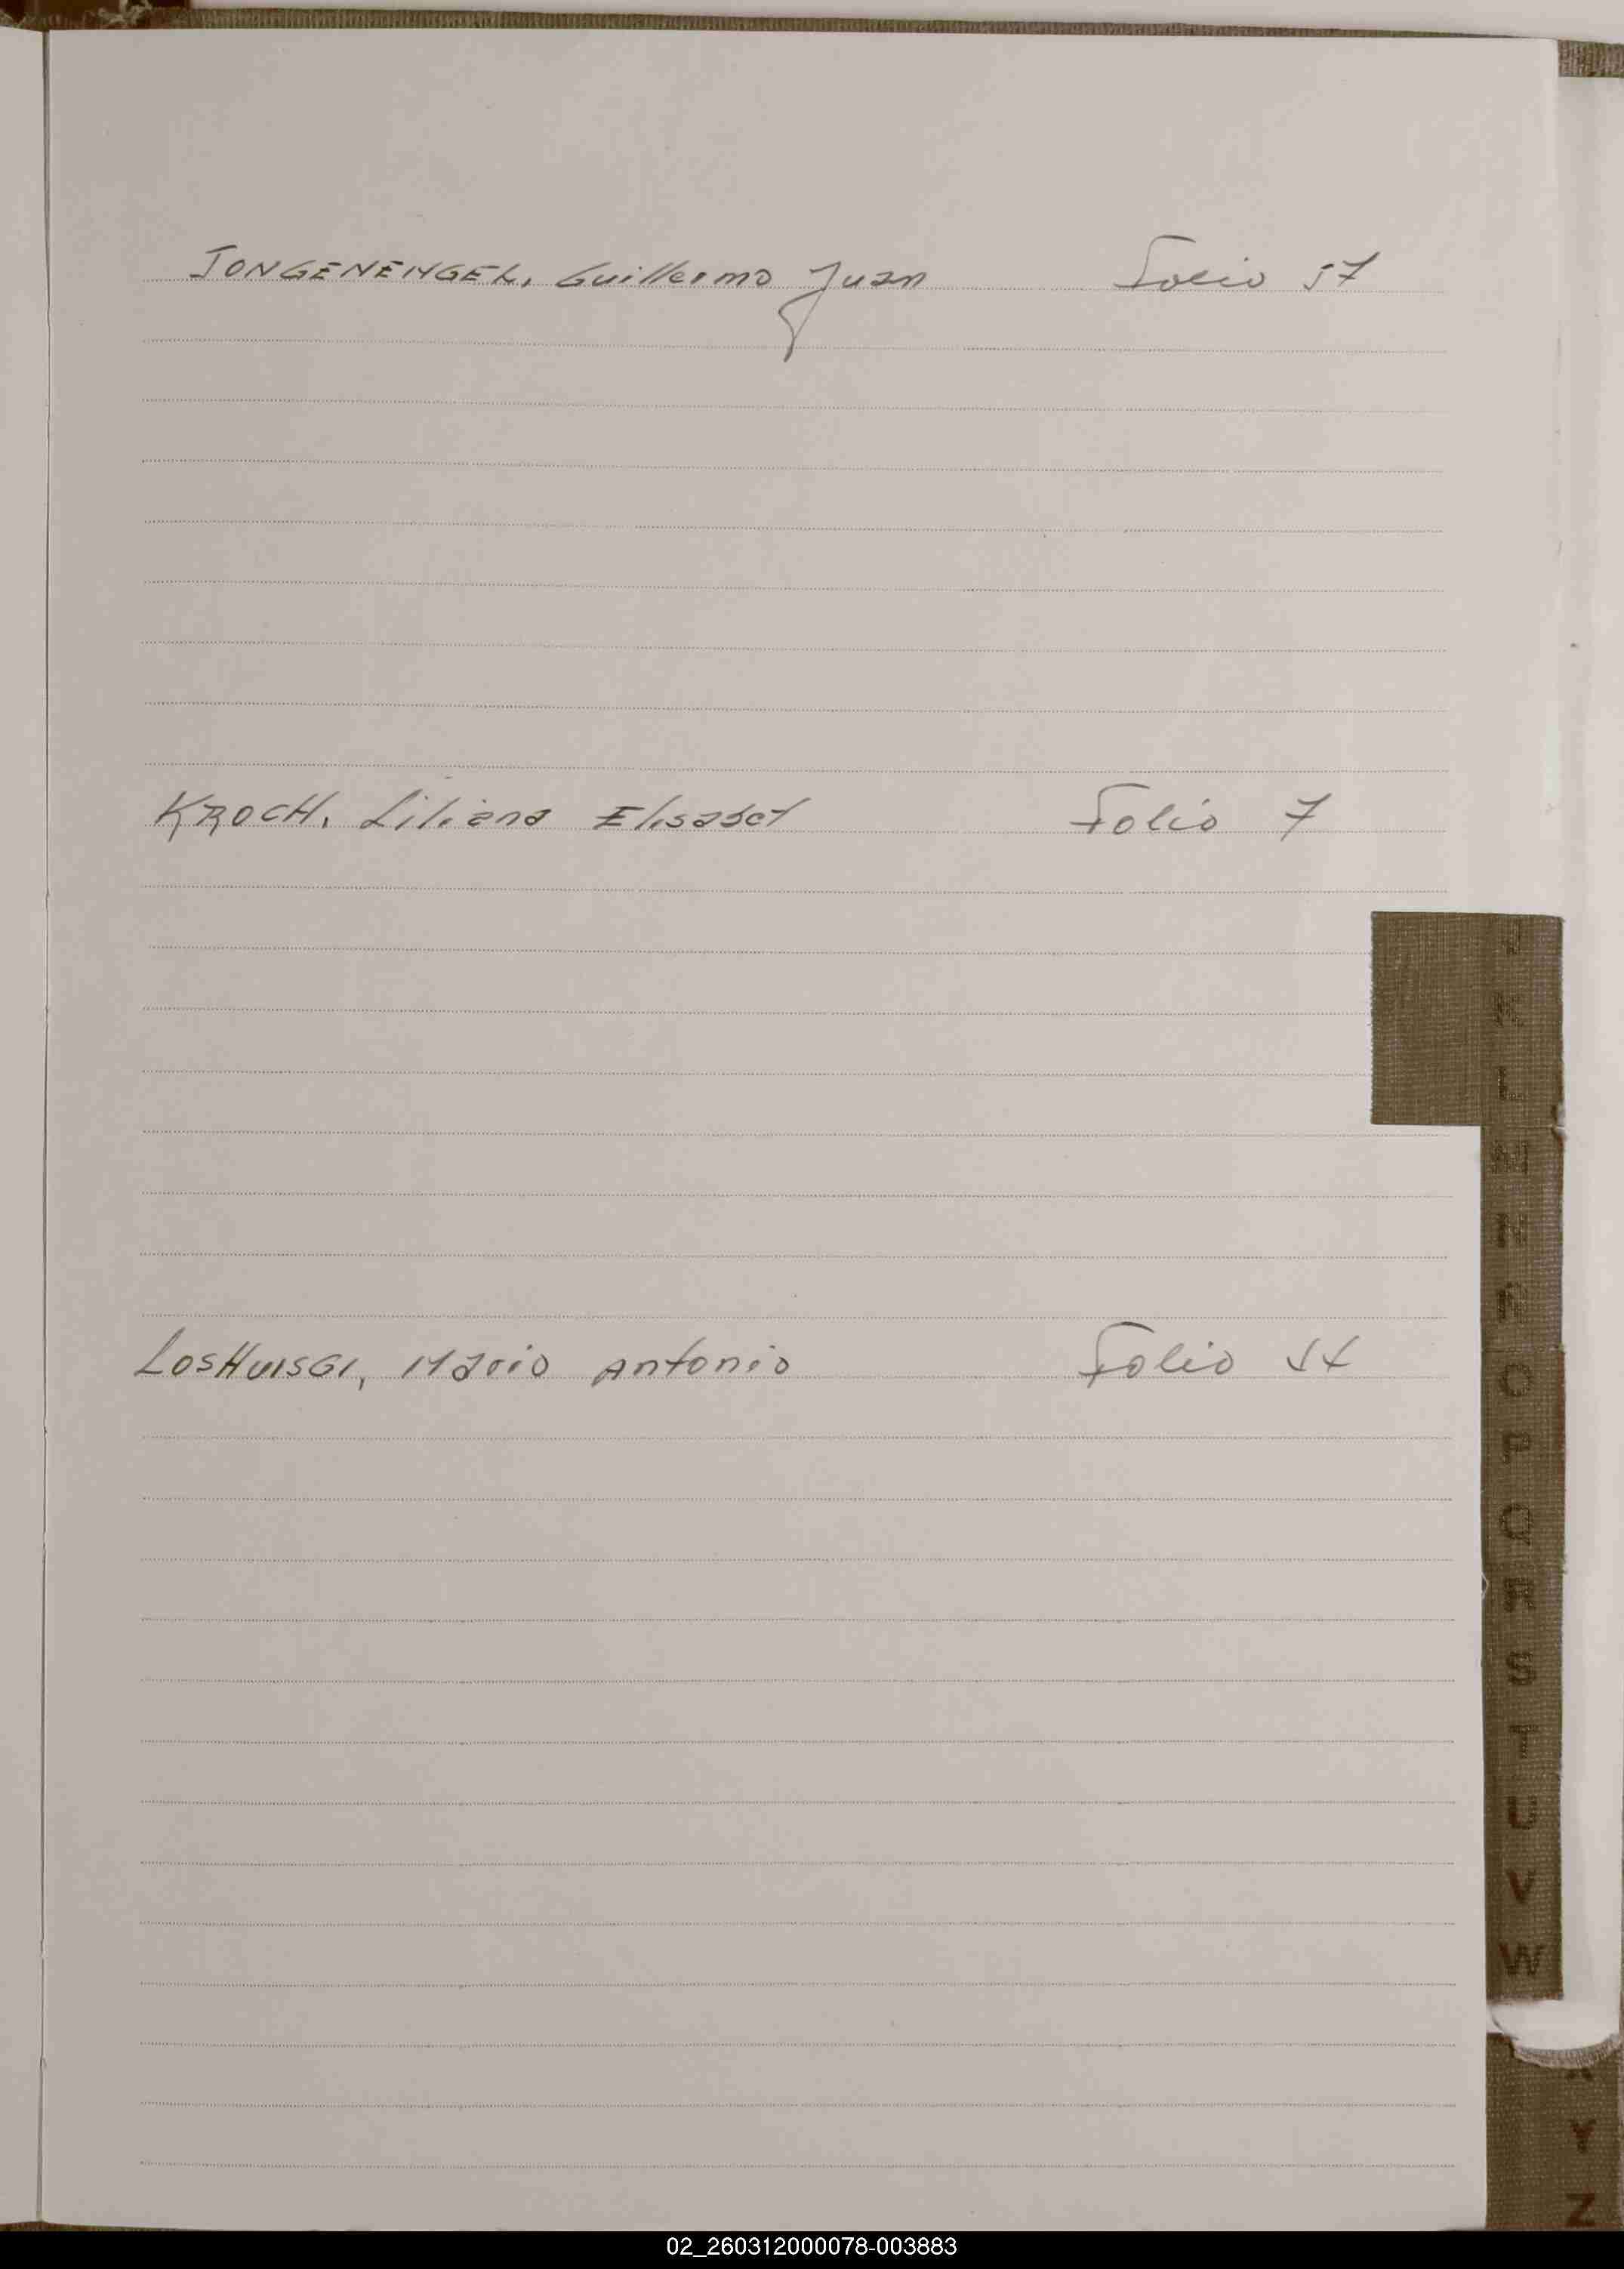 JONGENENGEL, Guillermo Juan Folio 57
KROCH, Liliana Elisabet Folio 7
Mario Antonio Folio
J
K
L
M
N
Ñ
O
P
Q
R
S
T
U
V
W
X
Y
Z
02_260312000078-003883